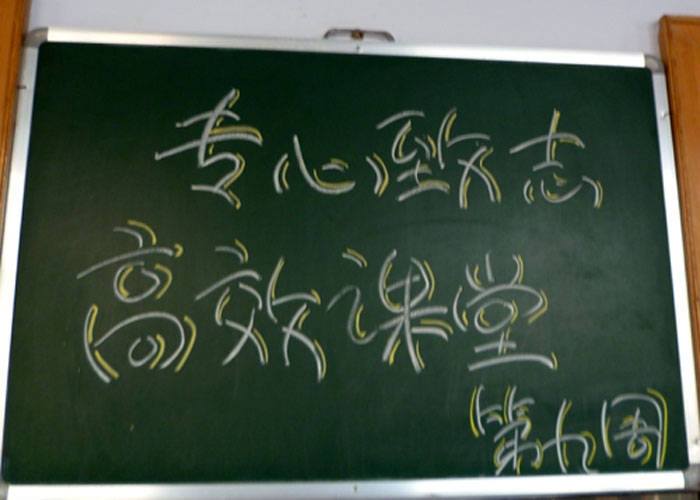 专心致志
高效课堂
第九周